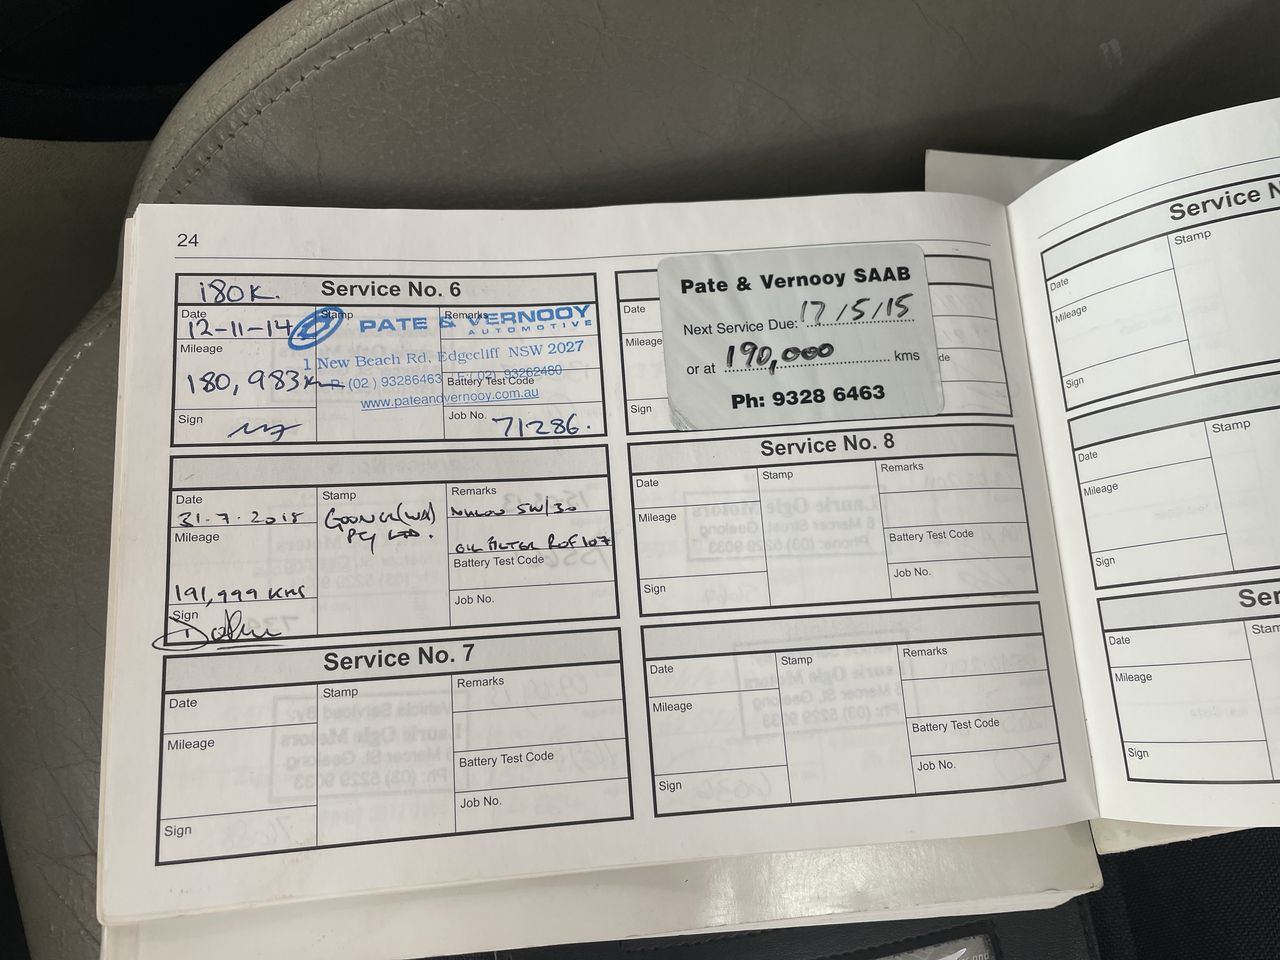 24
180K.
Service No. 6
Date
12-11-14
Stamp
Remarks
PATE & VERNOOY
AUTOMOTIVE
Mileage
180,983
1 New Beach Rd, Edgecliff NSW 2027
(02) 93286463 F: (02) 93262480
Battery Test Code
www.pateandvernooy.com.au
Sign
Job No.
71286.
Date
31.7.2015
Stamp
(WA)
PTY LTD.
Remarks
5W/30
Mileage
OIL FILTER ROF107
Battery Test Code
191,999 KMS
Job No.
Sign
Service No. 7
Date
Stamp
Remarks
Mileage
Battery Test Code
Job No.
Sign
Pate & Vernooy SAAB
Next Service Due: 17/5/15
or at 190,000 kms
Ph: 9328 6463
Date
Mileage
de
Sign
Service No. 8
Date
Stamp
Remarks
Mileage
Battery Test Code
Sign
Job No.
Date
Stamp
Remarks
Mileage
Battery Test Code
Sign
Job No.
Service N
Date
Stamp
Mileage
Sign
Date
Stamp
Mileage
Sign
Ser
Date
Stam
Mileage
Sign